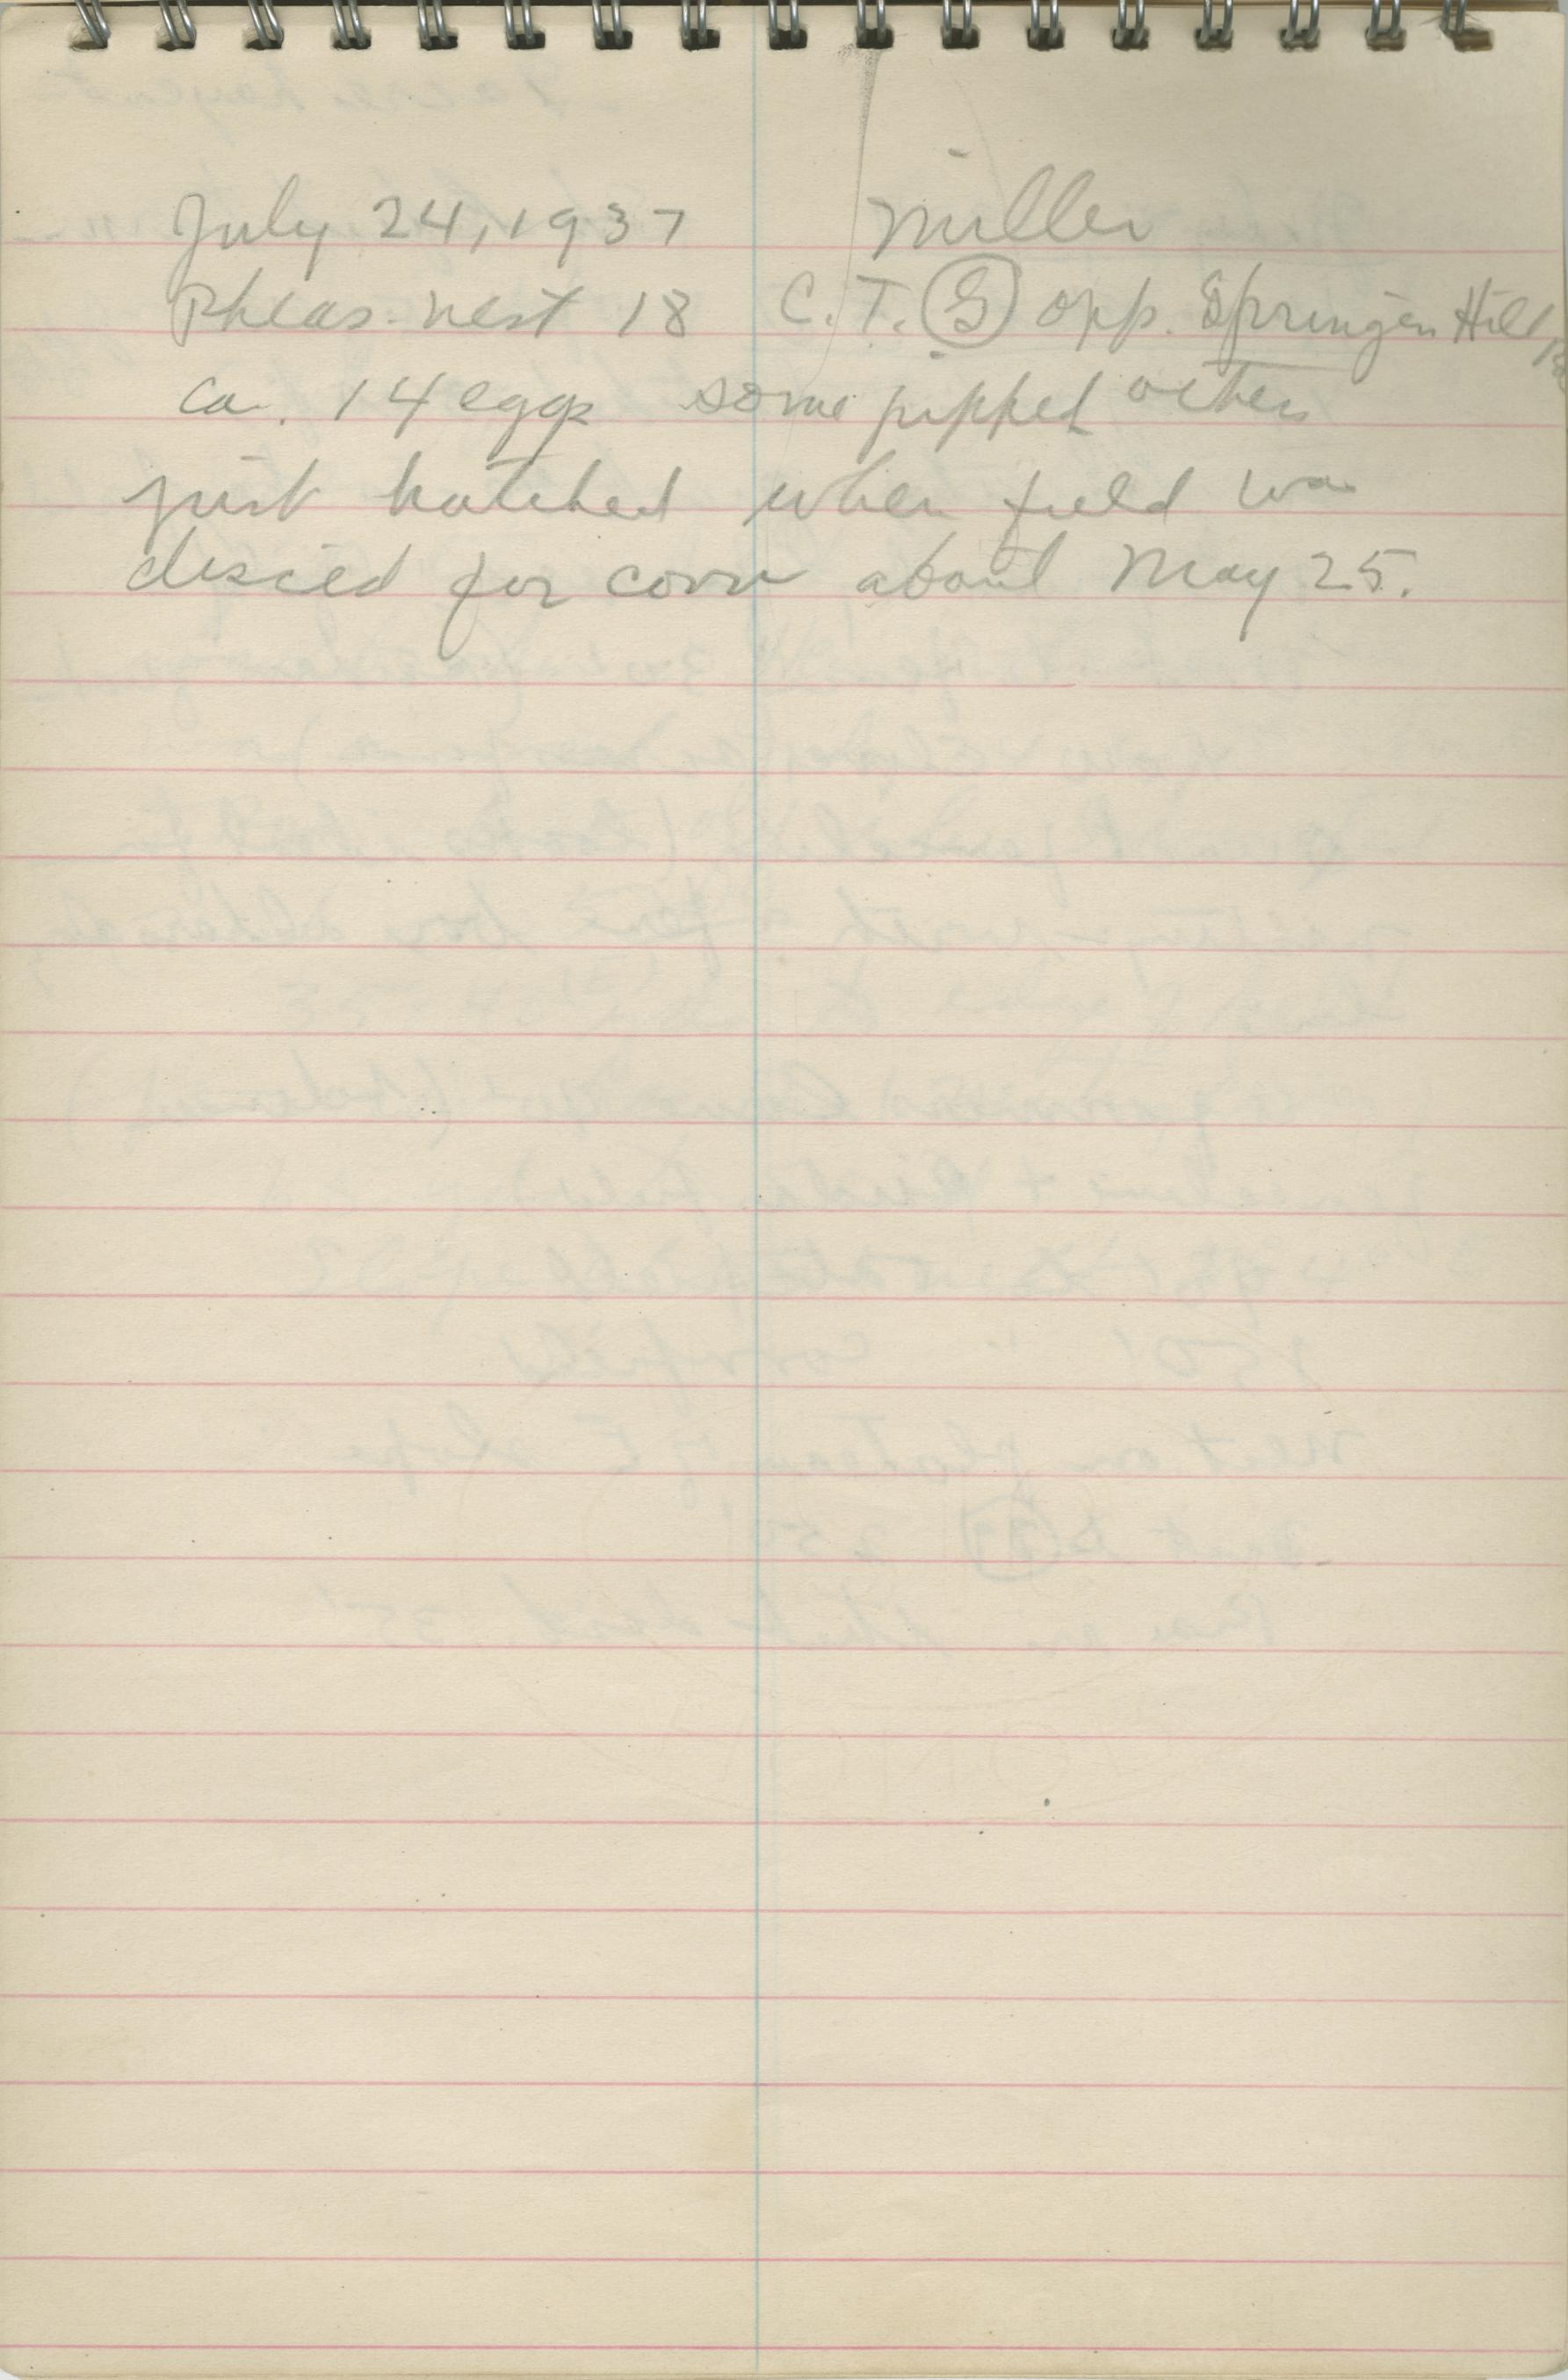 July 24, 1937 Miller
Pheas. nest 18 C.T. G opp. Springen Hill
ca. 14 eggs some pipped others
just hatched when field was
disced for corn about May 25.